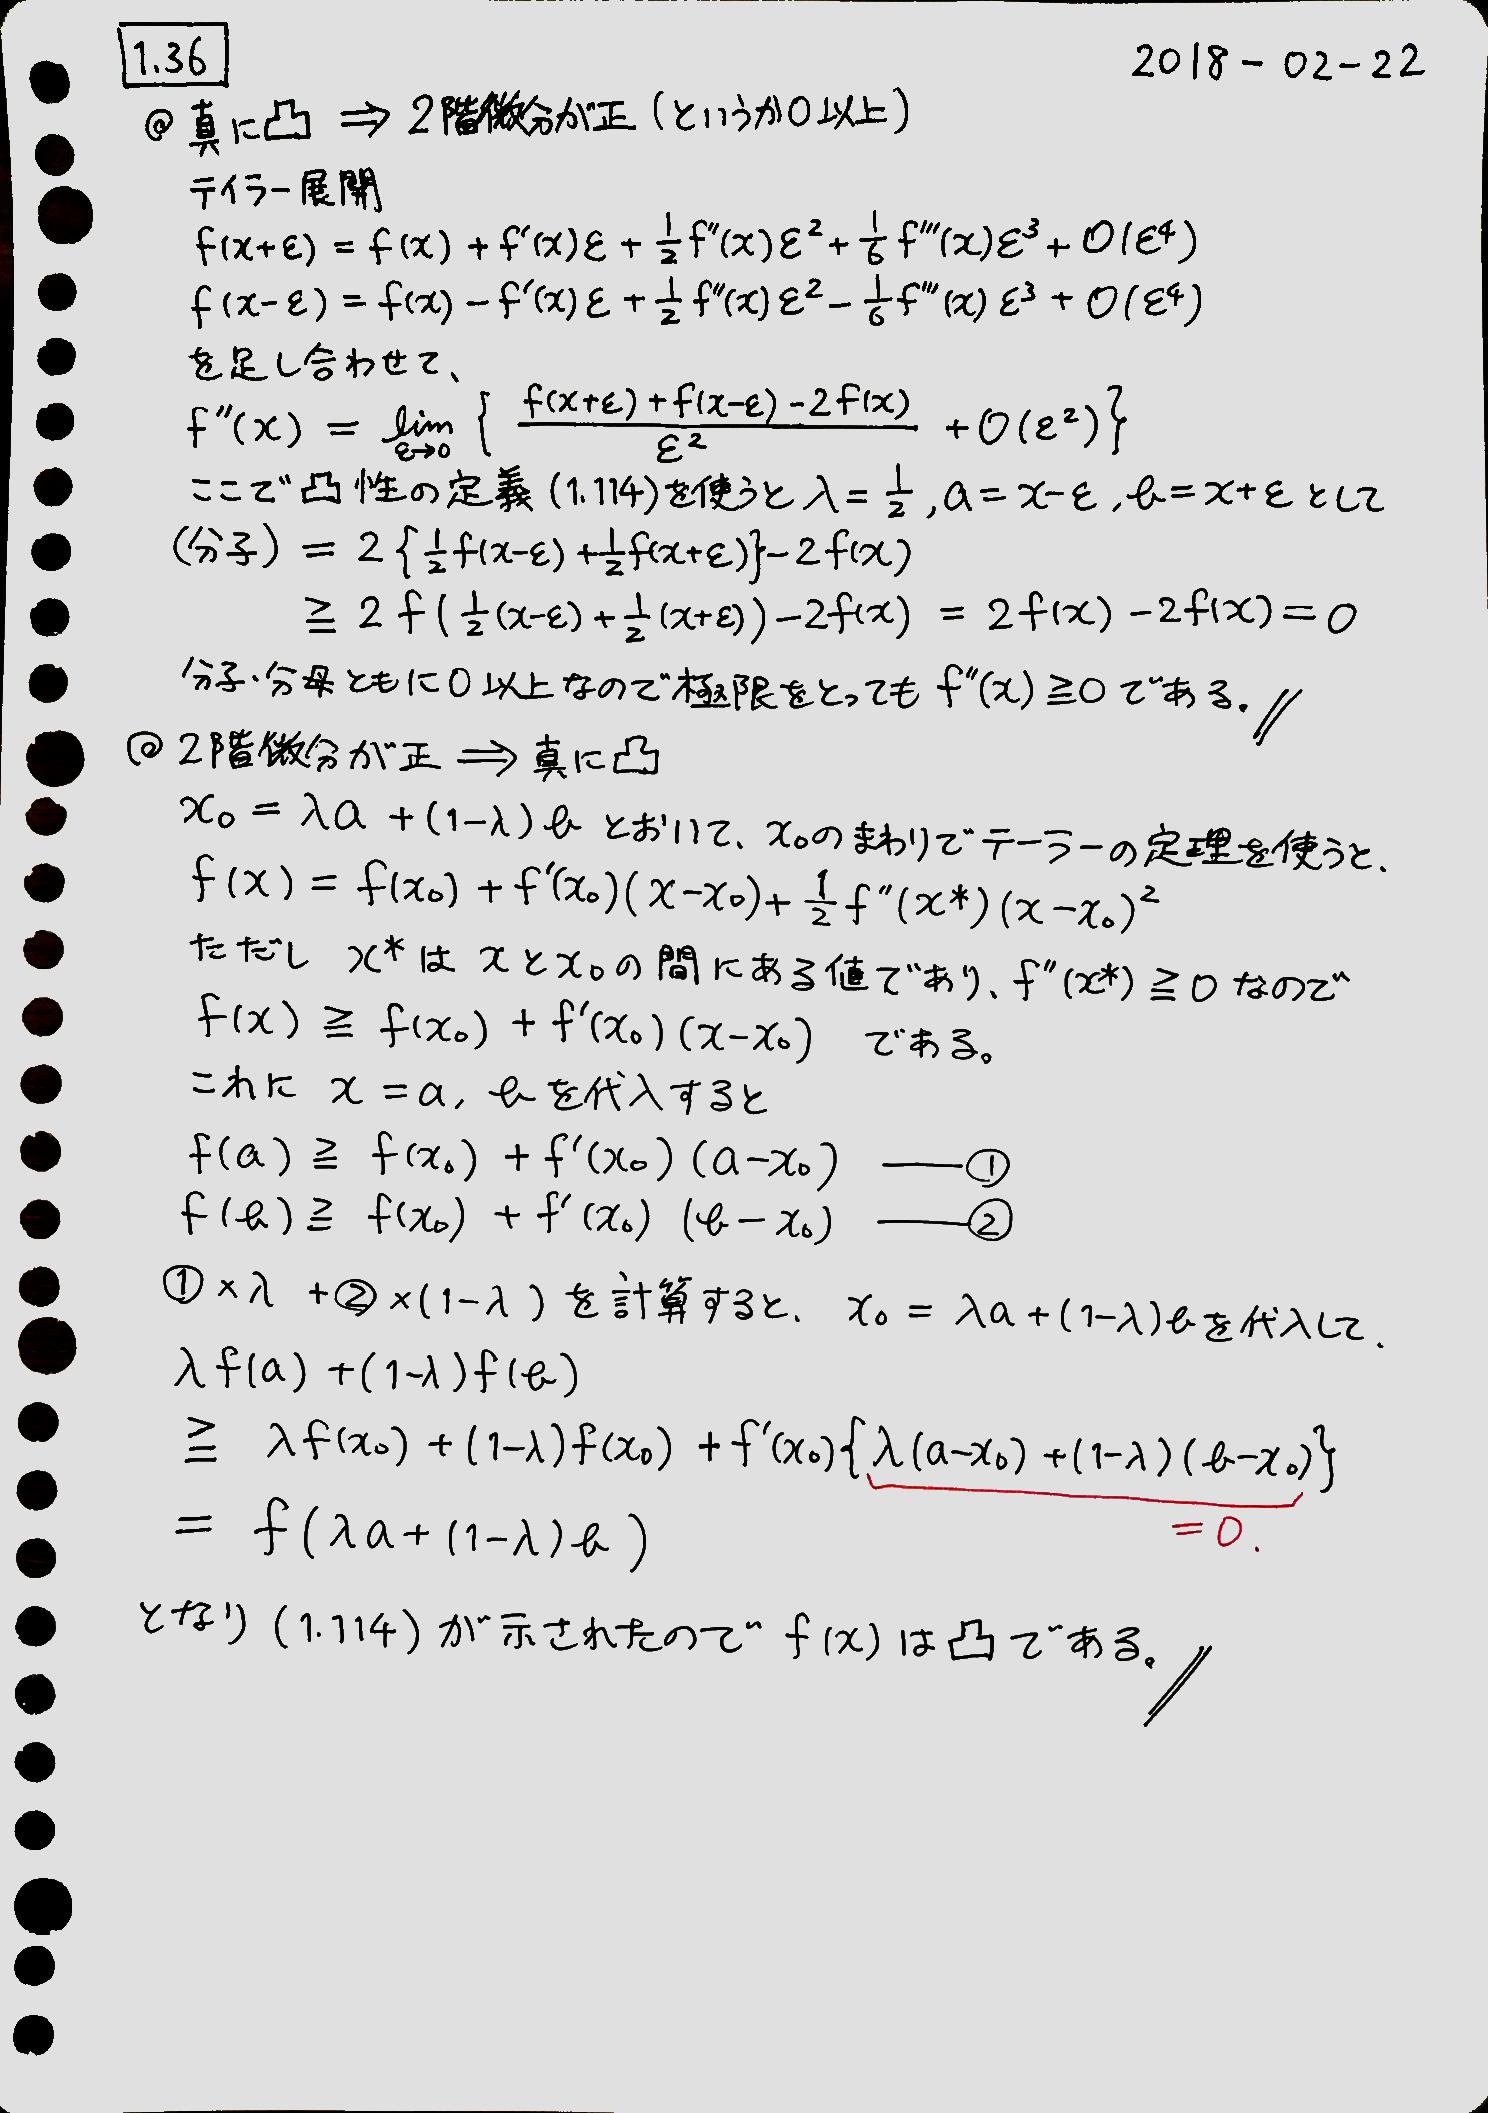 1.36
2018-02-22
@ 真に凸 ⇒ 2階微分が正(というか0以上)
テイラー展開
f(x+ε) = f(x) + f'(x)ε + 1/2 f''(x)ε² + 1/6 f'''(x)ε³ + O(ε⁴)
f(x-ε) = f(x) - f'(x)ε + 1/2 f''(x)ε² - 1/6 f'''(x)ε³ + O(ε⁴)
を足し合わせて、
f''(x) = lim_{ε→0} { (f(x+ε)+f(x-ε)-2f(x))/ε² + O(ε²) }
ここで凸性の定義(1.114)を使うと λ=1/2, a=x-ε, b=x+ε として
(分子) = 2{1/2 f(x-ε) + 1/2 f(x+ε)} - 2f(x)
≧ 2f(1/2(x-ε) + 1/2(x+ε)) - 2f(x) = 2f(x) - 2f(x) = 0
分子・分母ともに0以上なので極限をとっても f''(x) ≧ 0 である. //
@ 2階微分が正 ⇒ 真に凸
x₀ = λa + (1-λ)b とおいて、x₀のまわりでテーラーの定理を使うと、
f(x) = f(x₀) + f'(x₀)(x-x₀) + 1/2 f''(x*)(x-x₀)²
ただし x* は x と x₀ の間にある値であり、f''(x*) ≧ 0 なので
f(x) ≧ f(x₀) + f'(x₀)(x-x₀) である。
これに x = a, b を代入すると
f(a) ≧ f(x₀) + f'(x₀)(a-x₀) ―①
f(b) ≧ f(x₀) + f'(x₀)(b-x₀) ―②
①×λ + ②×(1-λ) を計算すると、x₀ = λa + (1-λ)b を代入して、
λf(a) + (1-λ)f(b)
≧ λf(x₀) + (1-λ)f(x₀) + f'(x₀){λ(a-x₀) + (1-λ)(b-x₀)}
= 0.
= f(λa + (1-λ)b)
となり (1.114) が示されたので f(x) は凸である。//